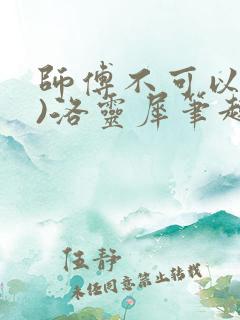 師傅不可以
)洛靈犀筆趣
伍静
未经同意禁止转载